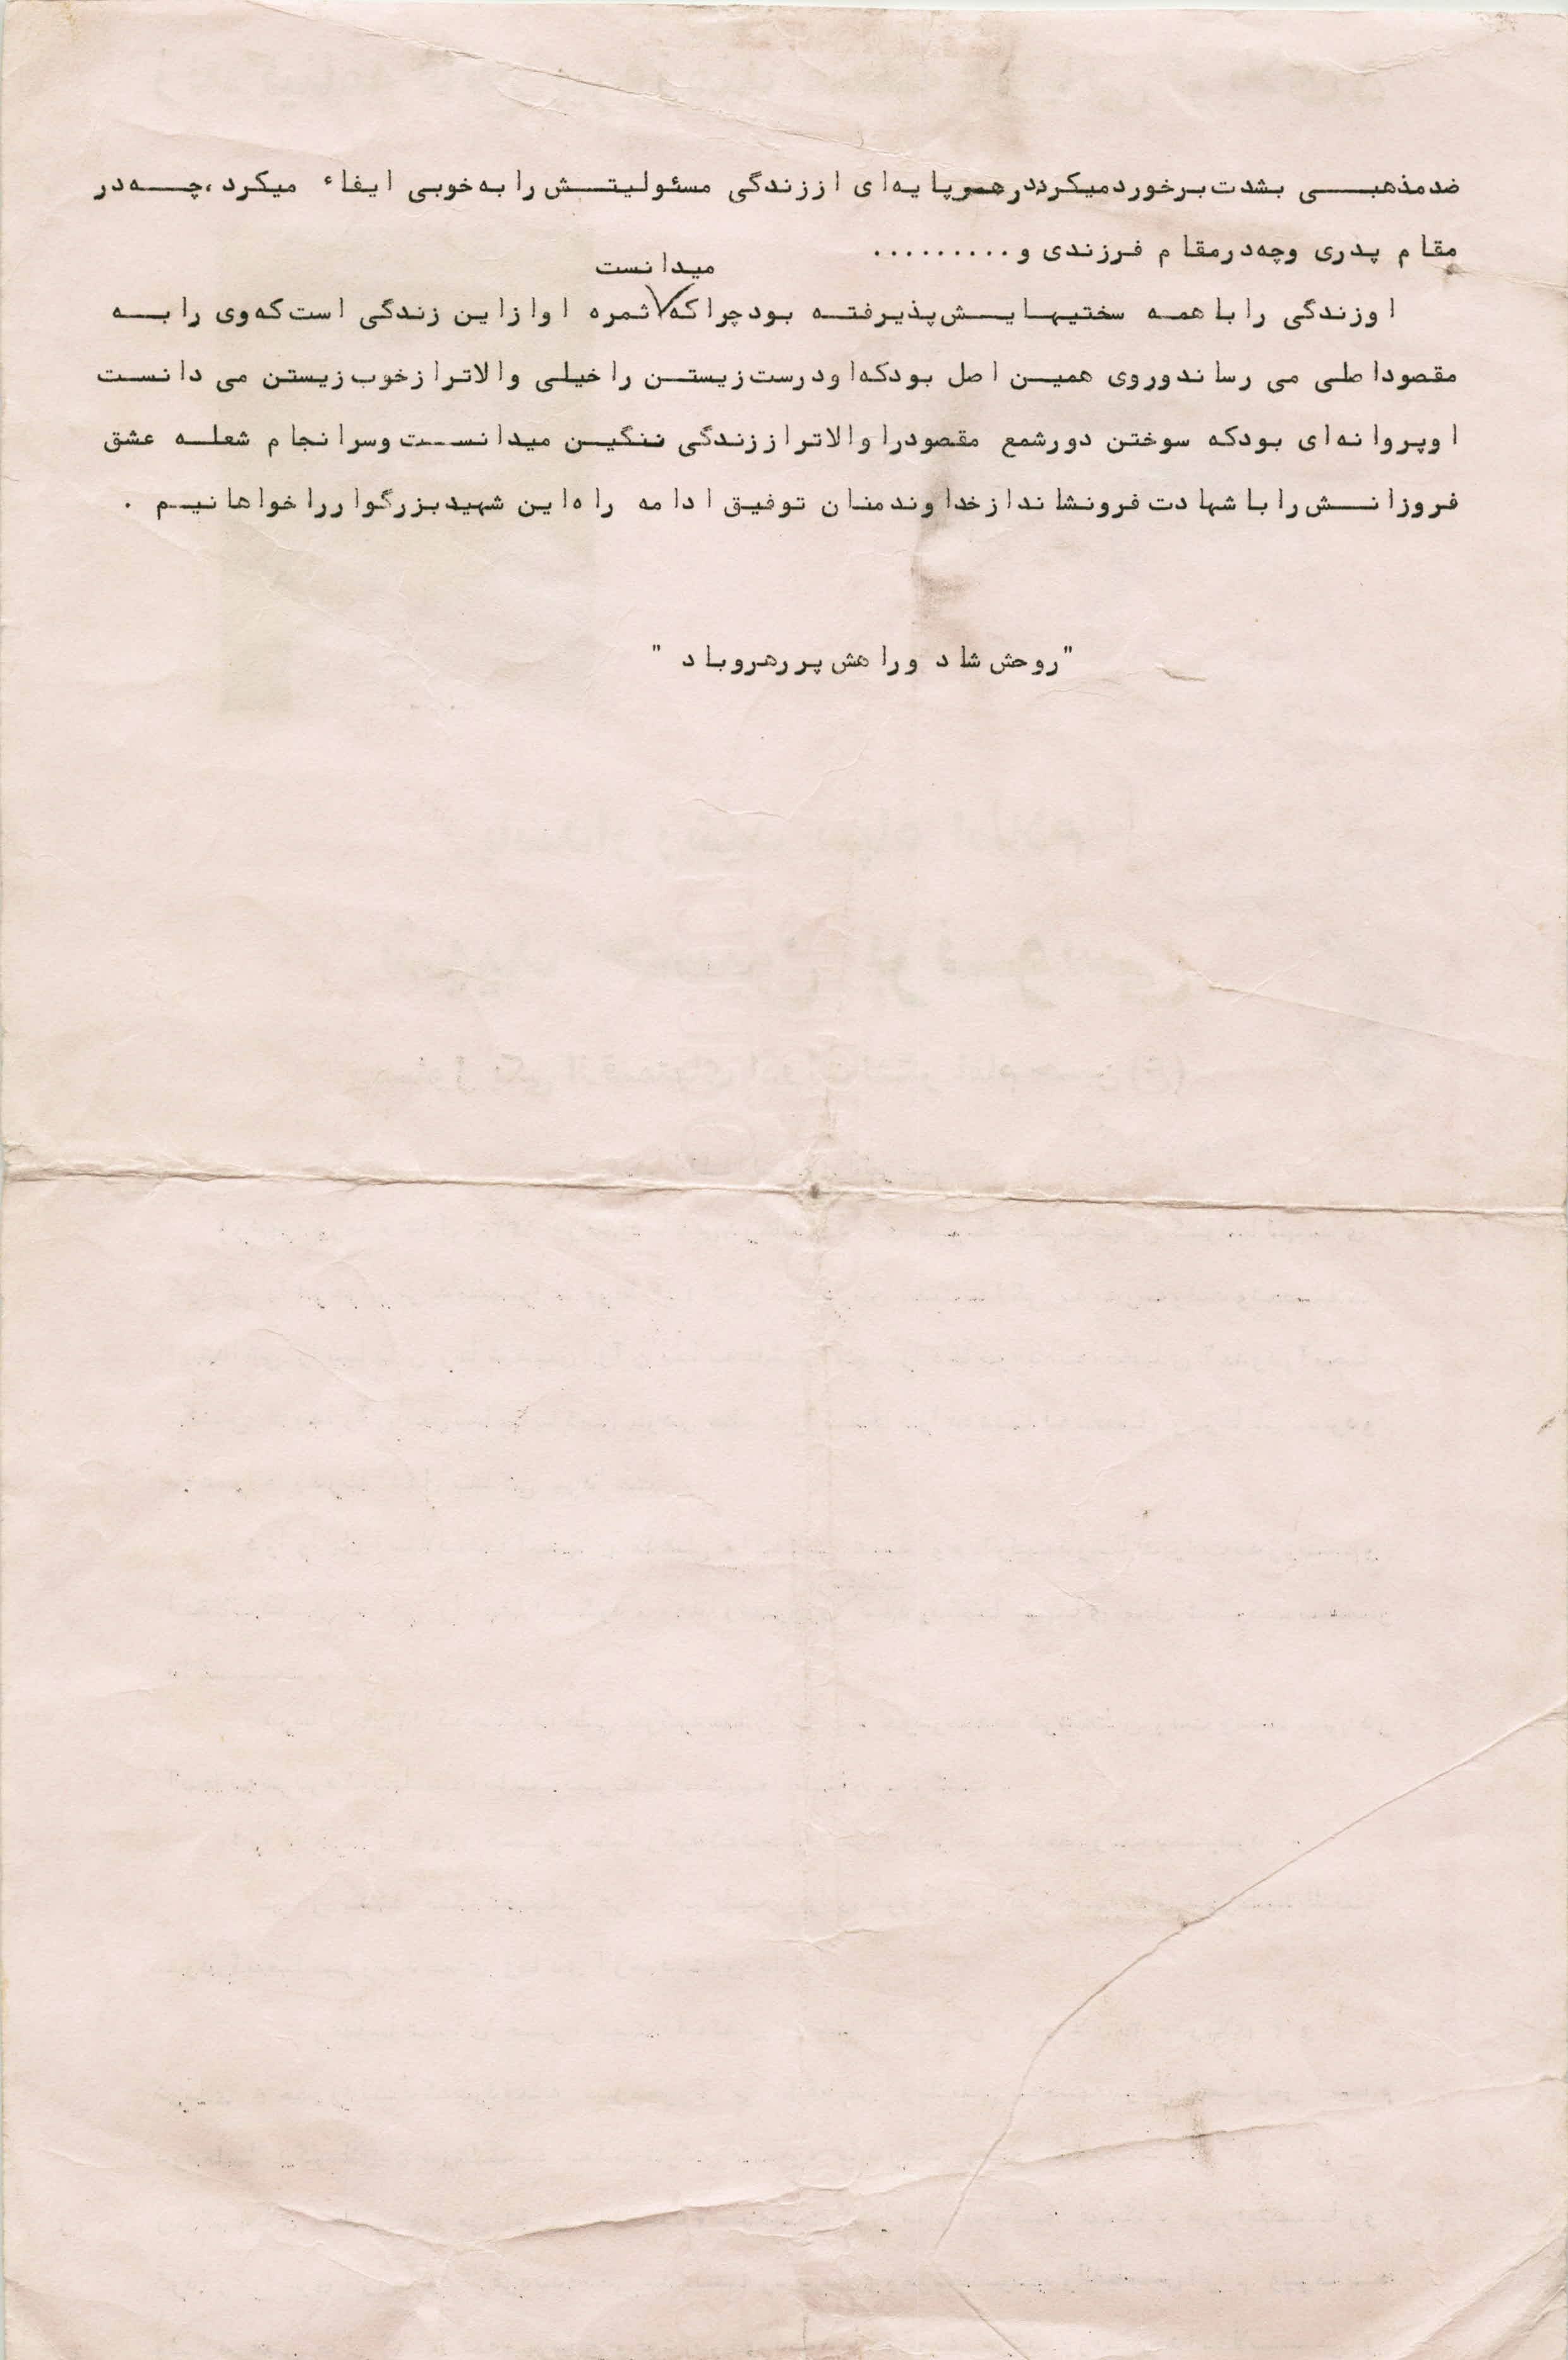 ضدمذهبی بشدت برخوردمیکرددرهرپایه‌ای اززندگی مسئولیتش را به خوبی ایفاء میکرد،چه‌در
مقام پدری وچه‌درمقام فرزندی و.........
میدانست
اوزندگی را باهمه سختیهایش پذیرفته بود چراکه ثمره اوازاین زندگی است که وی را به
مقصوداصلی می رساندوروی همین اصل بودکه‌اودرست زیستن راخیلی والاترازخوب زیستن می دانست
اوپروانه‌ای بودکه سوختن دورشمع مقصودرا والاتراززندگی ننگین میدانست وسرانجام شعله عشق
فروزانش را باشهادت فرونشاندازخداوندمنان توفیق ادامه راه‌این شهیدبزرگوارراخواهانیم .
"روحش شاد وراهش پررهروباد "